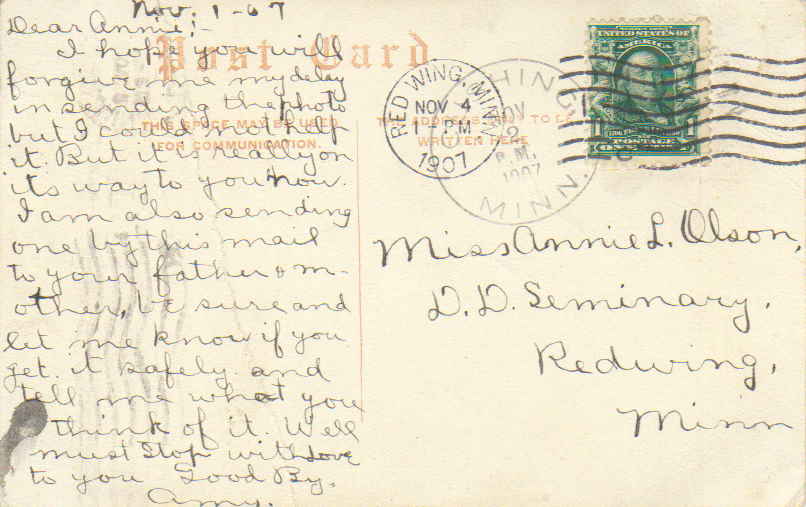 Nov. 1-07
Dear Annie;-
I hope you will
forgive me my delay
in sending the photo
but I could not help
it. But it is really on
its way to you now.
I am also sending
one by this mail
to your father & m-
other, be sure and
let me know if you
get it safely and
tell me what you
think of it. Well
must stop with love
to you Good By.
Amy.
Post Card
THIS SPACE MAY BE USED
FOR COMMUNICATION.
THE ADDRESS ONLY TO BE
WRITTEN HERE
RED WING, MINN.
NOV 4
1 - PM
1907
HING
NOV
2
P.M.
1907
MINN.
UNITED STATES OF
AMERICA
POSTAGE
Miss Annie L. Olson,
D. D. Seminary,
Redwing,
Minn